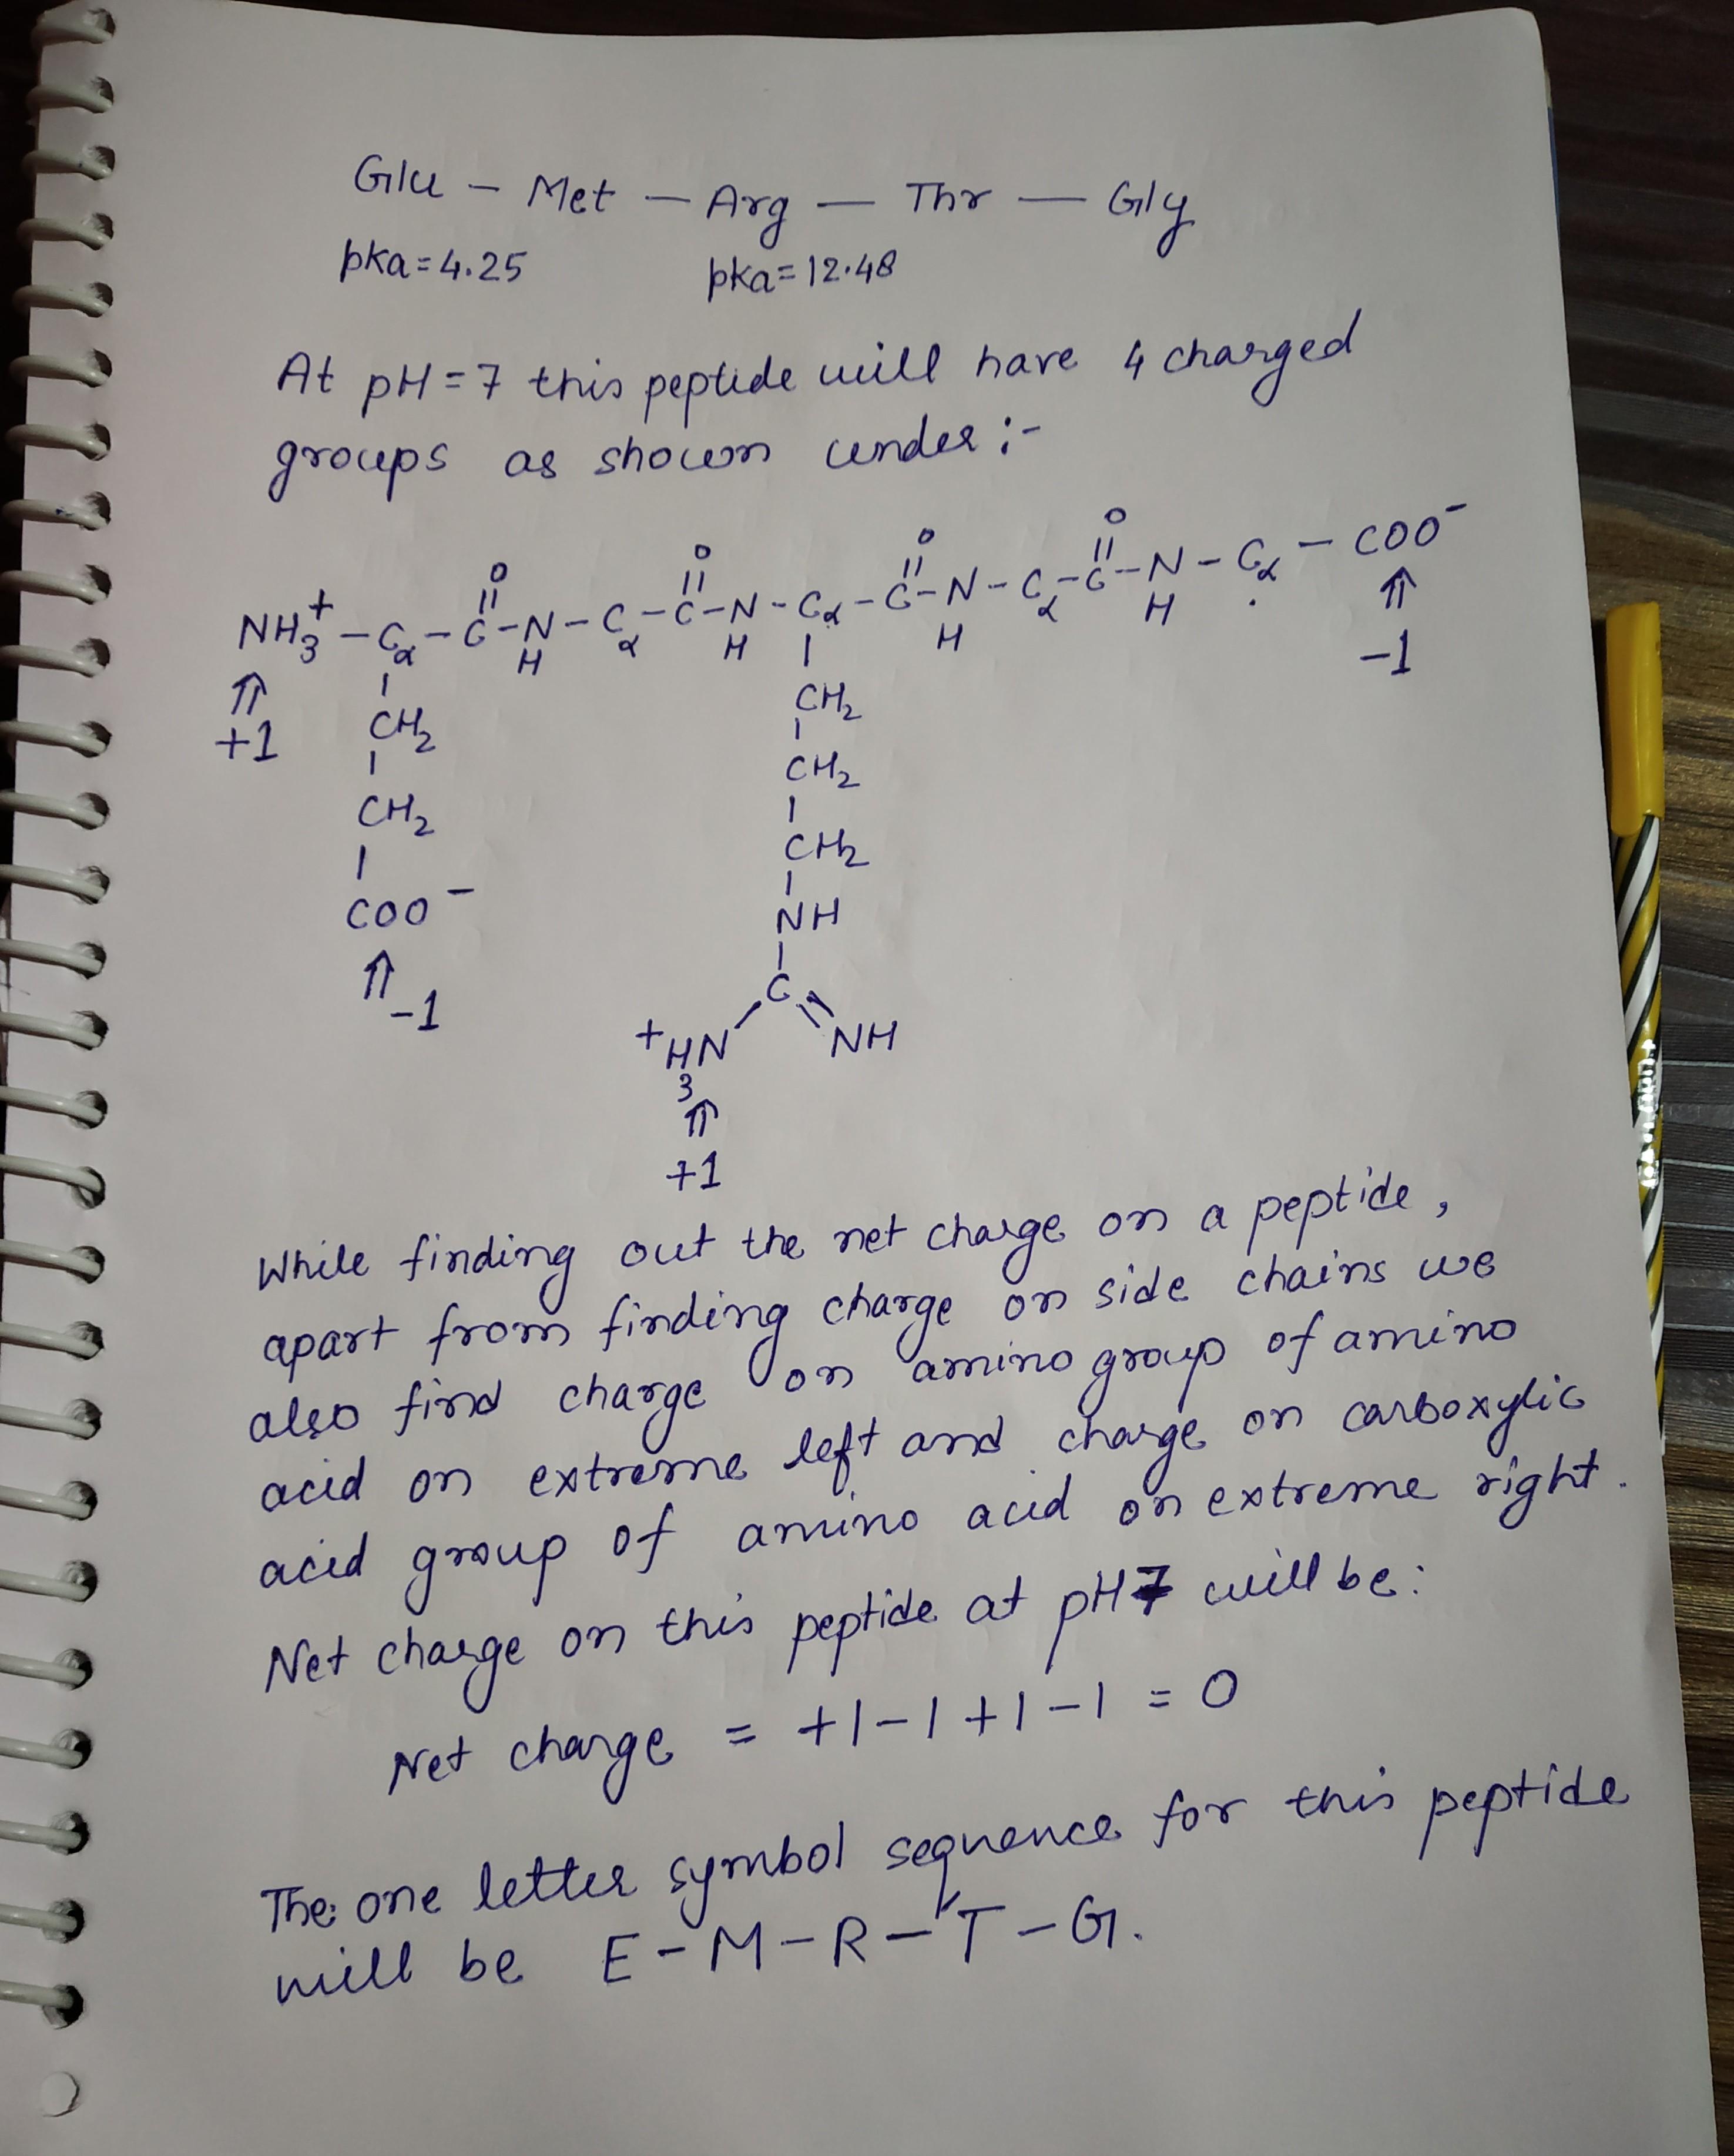 Glu - Met - Arg - Thr - Gly
pka=4.25 pka=12.48
At pH=7 this peptide will have 4 charged
groups as shown under :-
O O O O
NH3+ - Cα - C - N - Cα - C - N - Cα - C - N - Cα - C - N - Cα - COO-
H H H H
+1 -1
CH2 CH2
CH2 CH2
CH2
COO- NH
-1 C
+HN3 NH
+1
While finding out the net charge on a peptide,
apart from finding charge on side chains we
also find charge on amino group of amino
acid on extreme left and charge on carboxylic
acid group of amino acid on extreme right.
Net charge on this peptide at pH7 will be:
Net charge = +1-1+1-1 = 0
The one letter symbol sequence for this peptide
will be E-M-R-T-G.